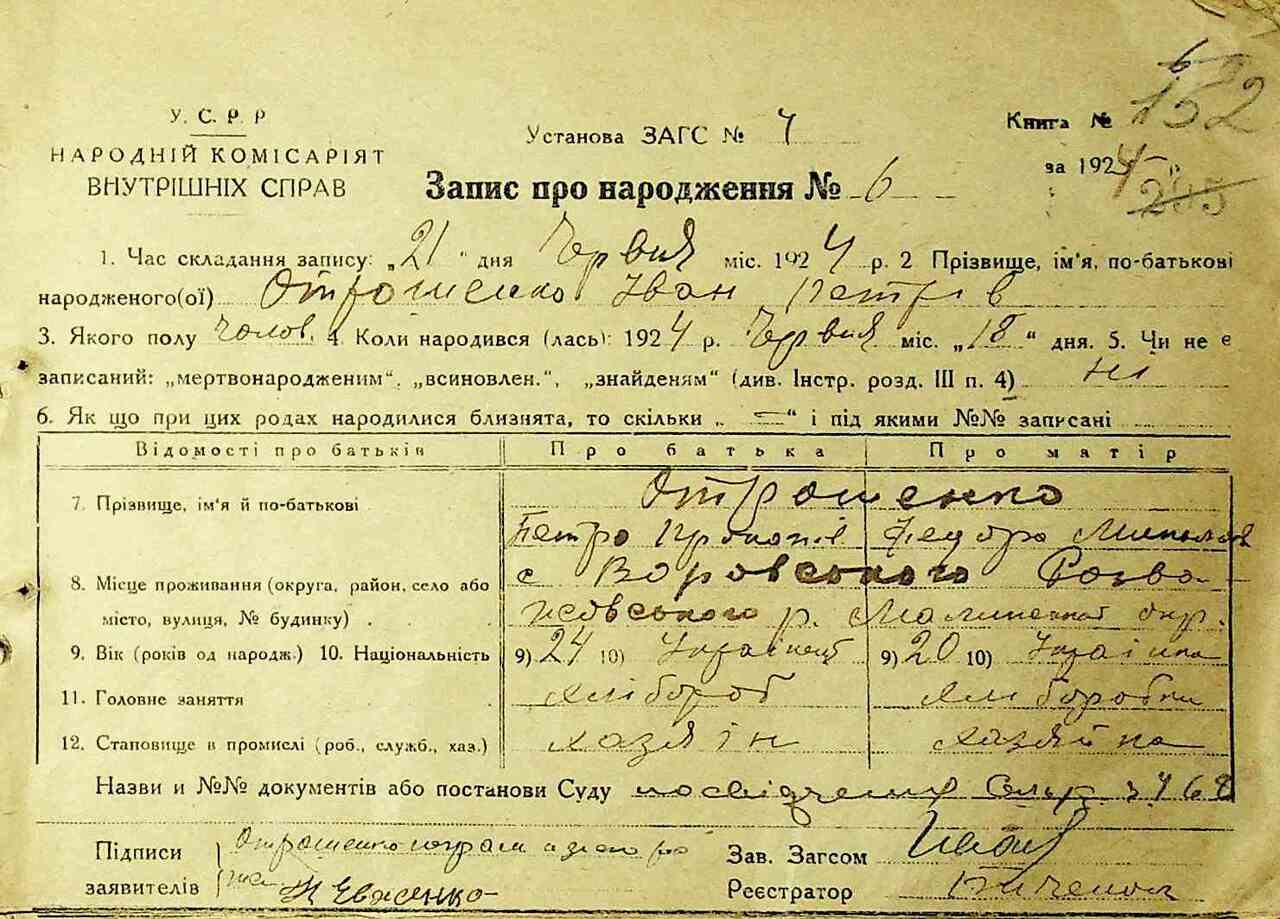 У. С. Р. Р
НАРОДНІЙ КОМІСАРІЯТ
ВНУТРІШНІХ СПРАВ
Установа ЗАГС № 4
Книга № 152
за 1924
205
Запис про народження № 6
1. Час складання запису: „21" дня Червня міс. 1924 р. 2 Прізвище, ім'я, по-батькові
народженого(ої) Отрошенко Іван Петрів
3. Якого полу чолов. 4. Коли народився (лась): 1924 р. Червня міс. „18" дня. 5. Чи не є
записаний: „мертвонародженим", „всиновлен.", „знайденям" (див. Інстр. розд. III п. 4) Ні
6. Як що при цих родах народилися близнята, то скільки „ — " і під якими №№ записані
Відомості про батьків Про батька Про матір
7. Прізвище, ім'я й по-батькові Отрошенко
Петро Прокопів Федора
8. Місце проживання (округа, район, село або с Воровського Розва-
місто, вулиця, № будинку) жевського р. Малинської окр.
9. Вік (років од народж.) 10. Національність 9) 24 10) Українець 9) 20 10) Українка
11. Головне заняття хлібороб хліборобка
12. Становище в промислі (роб., служб., хаз.) хазяін хазяйка
Назви и №№ документів або постанови Суду посвідчення Сельр.
Підписи Отрошенко
заявителів
Зав. Загсом
Реєстратор